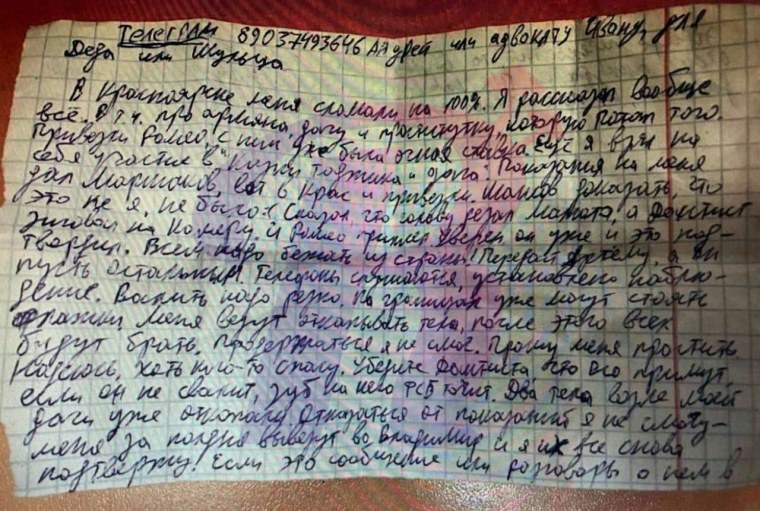 Телеграм 89037493646 Андрей или адвокату Ивану, для
Деда или Шульца
В Красноярске меня сломали на 100%. Я рассказал вообще
всё. В т.ч. про армяна, дачу и проститутку, которую потом того.
Привезли Ромео, с ним уже была очная ставка. Ещё я взял на
себя участие в "казни таджика и дага". Показания на меня
дал Марцинков, его в Крас и привезли. Шансов доказать, что
это не я, не было. Сказал, что голову резал Мамота, а Дантист
на камеру. И Ромео уверен он уже и это под-
твердил. Всем надо бежать из страны! Передай Артёму, а он
пусть остальным. Телефоны слушаются, установлено наблю-
дение. Валить надо резко. На границах уже могут стоять
флажки. Меня везут откапывать тела, после этого всех
будут брать. Продержаться я не смог. Прошу меня простить.
Надеюсь, хоть кого-то спасу. Уберите Дантиста, его все примут,
если он не свалит, зуб на него ФСБ точит. Два тела возле моей
дачи уже откопали. Отказаться от показаний я не смогу –
меня за вывезут во Владимир и я их все снова
подтвержу! Если это сообщение или разговоры о нём в